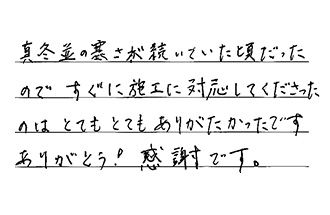 真冬並の寒さが続いていた頃だった
ので すぐに施工に対応してくださった
のは とてもとてもありがたかったです
ありがとう! 感謝です。